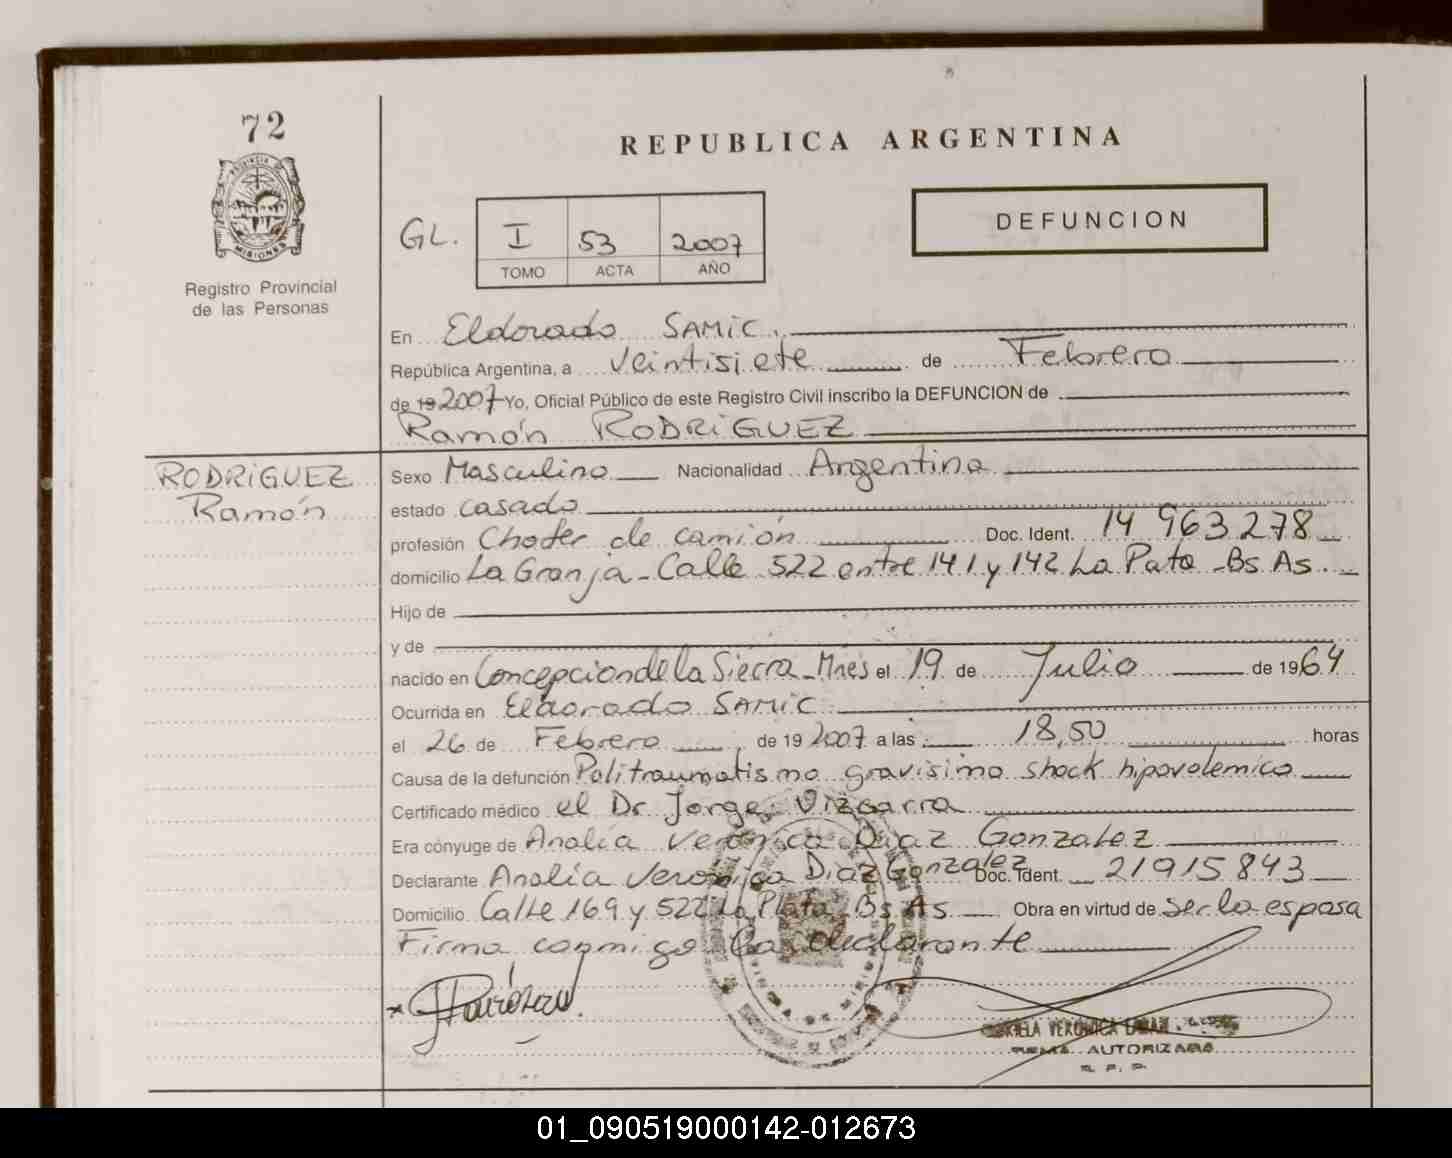 72
REPUBLICA ARGENTINA
PROVINCIA DE MISIONES
Registro Provincial
de las Personas
GL.
I 53 2007
TOMO ACTA AÑO
DEFUNCION
En Eldorado SAMIC.
República Argentina, a veintisiete de Febrero
de 19 2007 Yo, Oficial Público de este Registro Civil inscribo la DEFUNCION de
Ramón RODRIGUEZ
RODRIGUEZ
Ramón
Sexo Masculino Nacionalidad Argentina
estado casado
profesión Chofer de camión Doc. Ident. 14 963 278
domicilio La Granja - Calle 522 entre 141 y 142 La Plata - Bs As.
Hijo de
y de
nacido en Concepcion de la Sierra - Mnes el 19 de Julio de 1964
Ocurrida en Eldorado SAMIC
el 26 de Febrero de 19 2007 a las 18,50 horas
Causa de la defunción Politraumatismo gravisimo shock hipovolemico
Certificado médico el Dr Jorge Vizcarra
Era cónyuge de Analía Verónica Diaz Gonzalez
Declarante Analía Verónica Diaz Gonzalez Doc. Ident. 21915843
Domicilio Calle 169 y 522 La Plata - Bs As Obra en virtud de Ser la esposa
Firma conmigo la declarante
VERONICA
FIRMA AUTORIZADA
R. P. P.
01_090519000142-012673